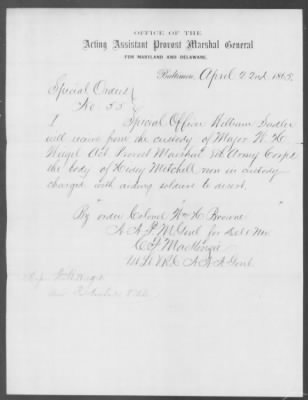 OFFICE OF THE
Acting Assistant Provost Marshal General
FOR MARYLAND AND DELAWARE,
Baltimore, April 22nd 1865.
Special Orders
No 55
I Special Officer William
will receive from the custody of Major W. H.
Weigel Act Provost Marshal 8th Army Corps
the body of Mitchell now in custody
charged with aiding soldier to desert.
By order Colonel Browne
A A P M Genl for Del & Md
C F MacKenzie
A A A Genl